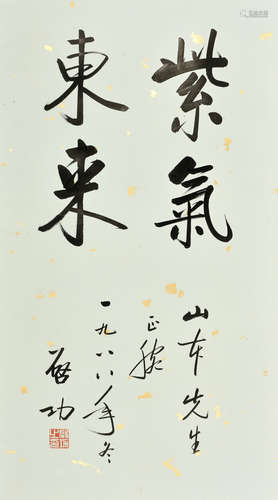 紫氣
東来
山本先生
正腕
一九八八年冬
啓功